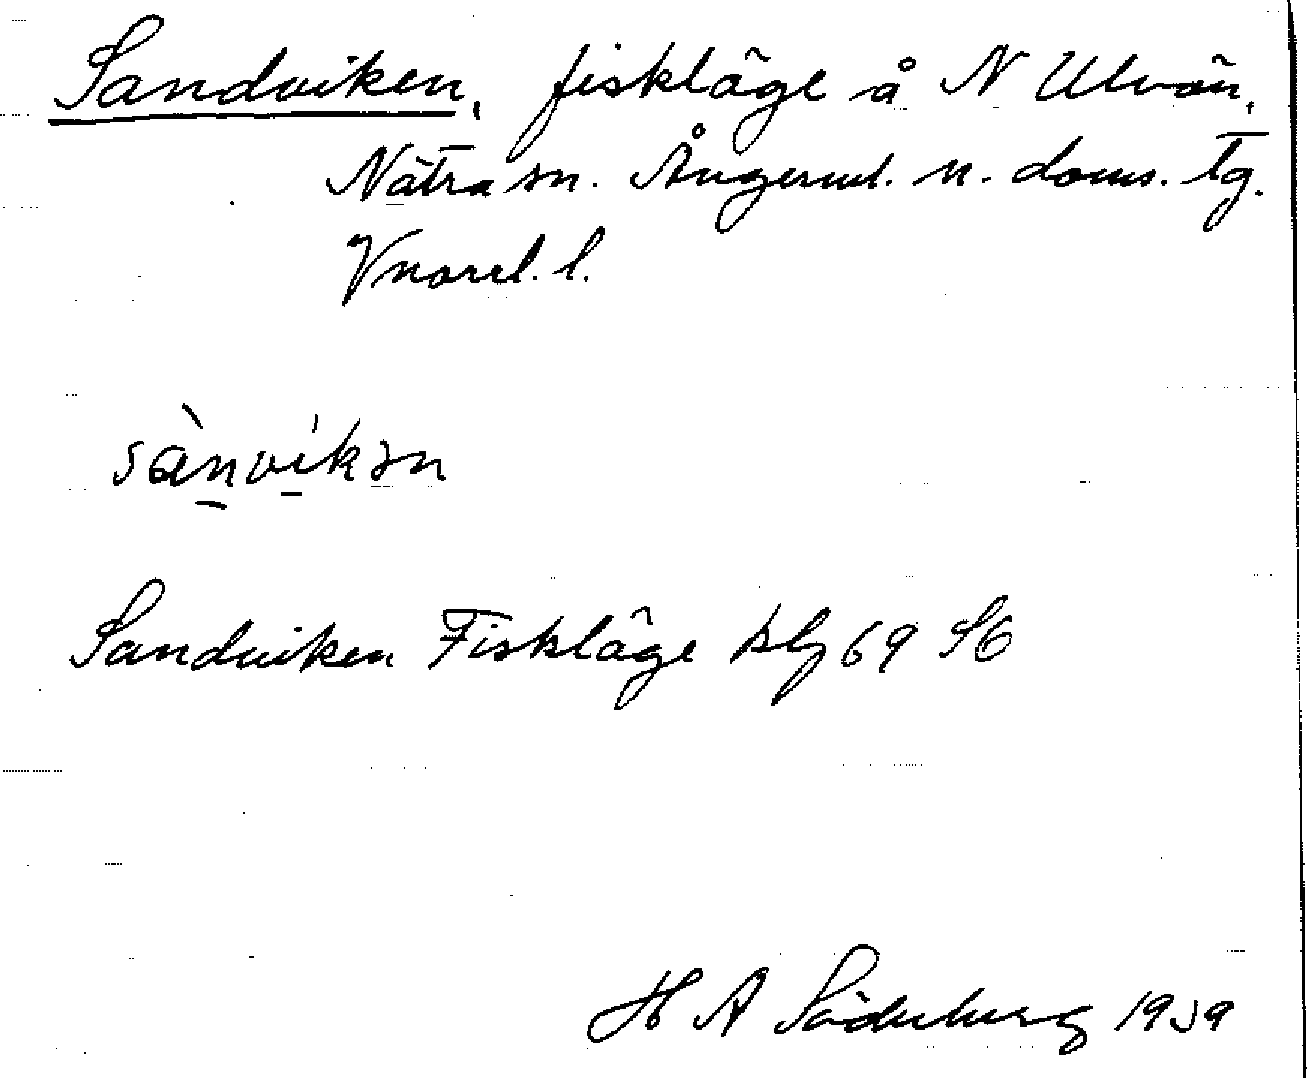 Sandviken, fiskläge å N Ulvön,
Nätra sn. Ångerml. n. doms. tg.
Vnorrl. l.
sànvíkən
Sandviken Fiskläge blg 69 S6
H A Söderberg 1939